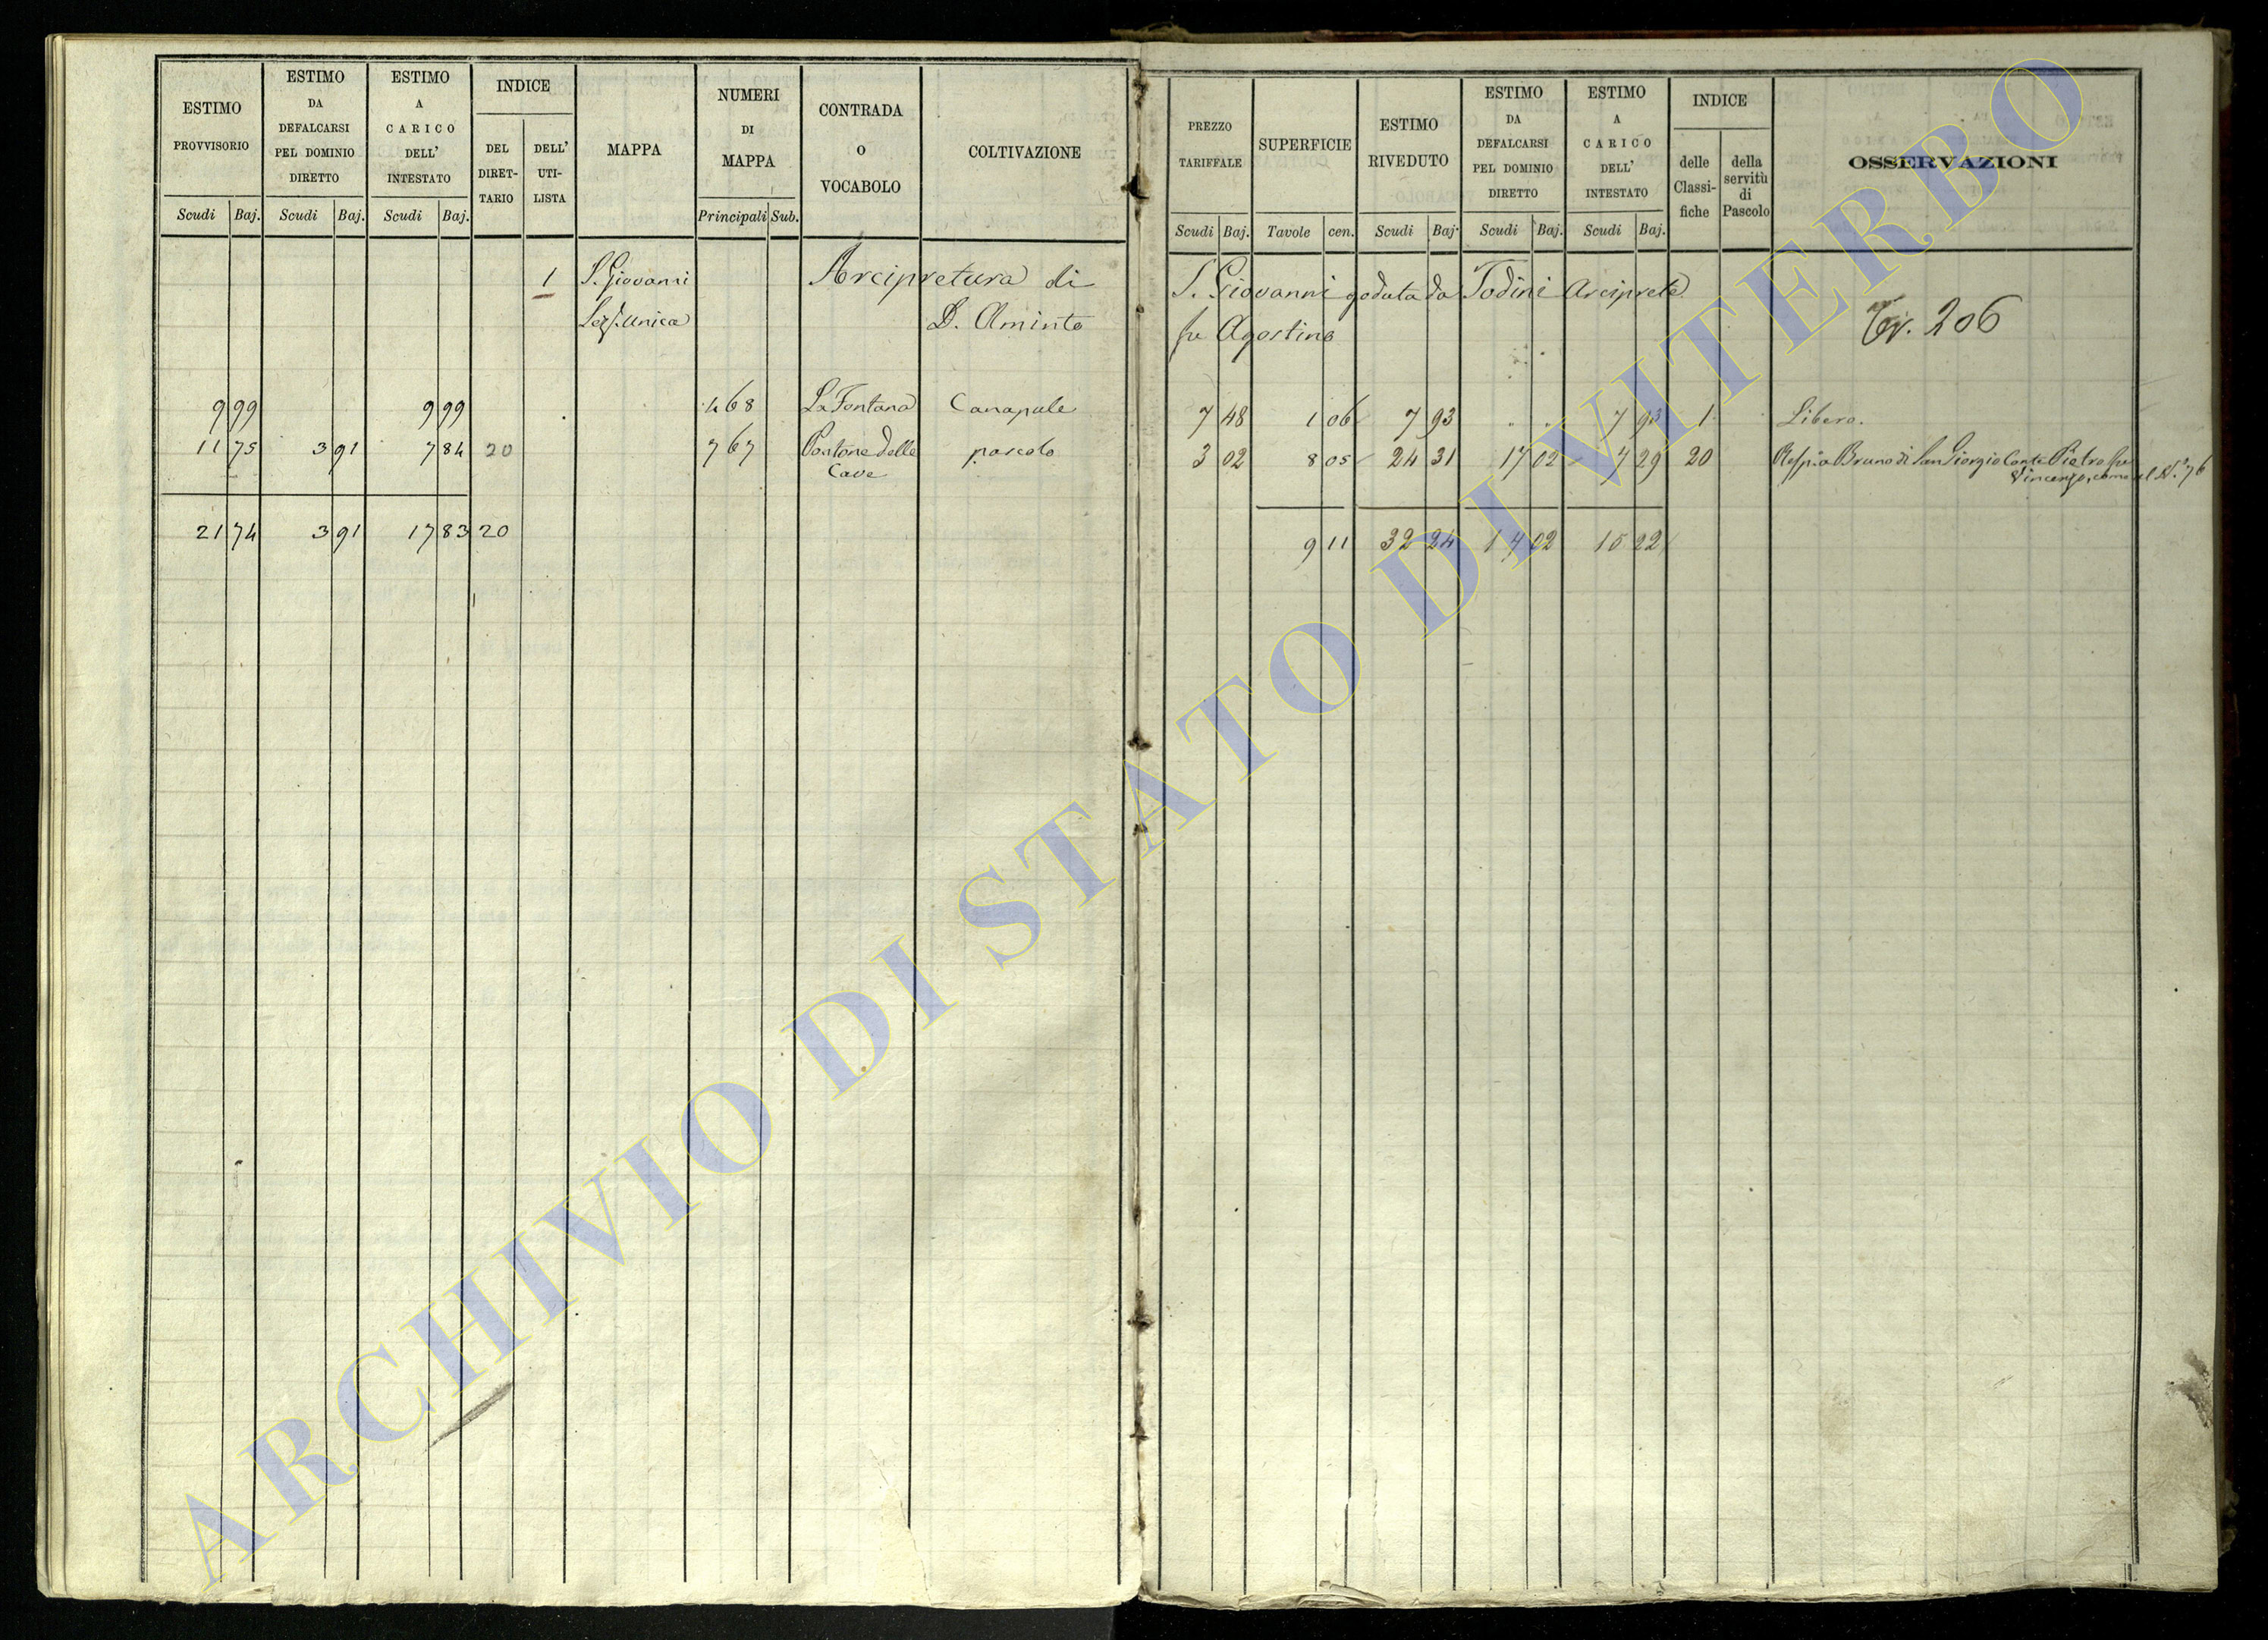 ESTIMO PROVVISORIO Scudi Baj.
ESTIMO DA DEFALCARSI PEL DOMINIO DIRETTO Scudi Baj.
ESTIMO A CARICO DELL' INTESTATO Scudi Baj.
INDICE DEL DIRETTARIO DELL' UTILISTA
MAPPA
NUMERI DI MAPPA Principali Sub.
CONTRADA O VOCABOLO
COLTIVAZIONE
1 S. Giovanni Arcipretura di
Sez. Unica D. Aminto
9 99 9 99 468 La Fontana Canapule
11 75 3 91 7 84 20 767 Pontone delle pascolo
Cave
21 74 3 91 17 83 20
PREZZO TARIFFALE Scudi Baj.
SUPERFICIE Tavole cen.
ESTIMO RIVEDUTO Scudi Baj.
ESTIMO DA DEFALCARSI PEL DOMINIO DIRETTO Scudi Baj.
ESTIMO A CARICO DELL' INTESTATO Scudi Baj.
INDICE delle Classifiche della servitù di Pascolo
OSSERVAZIONI
S. Giovanni goduta da Todini Arciprete
fu Agostino
206
7 48 1 06 7 93 " " 7 93 1 Libero.
3 02 8 05 24 31 17 02 7 29 20 Bruno di San Giorgio Conte Pietro fu
Vincenzo, come al N.° 76
9 11 32 24 17 02 15 22
ARCHIVIO DI STATO DI VITERBO